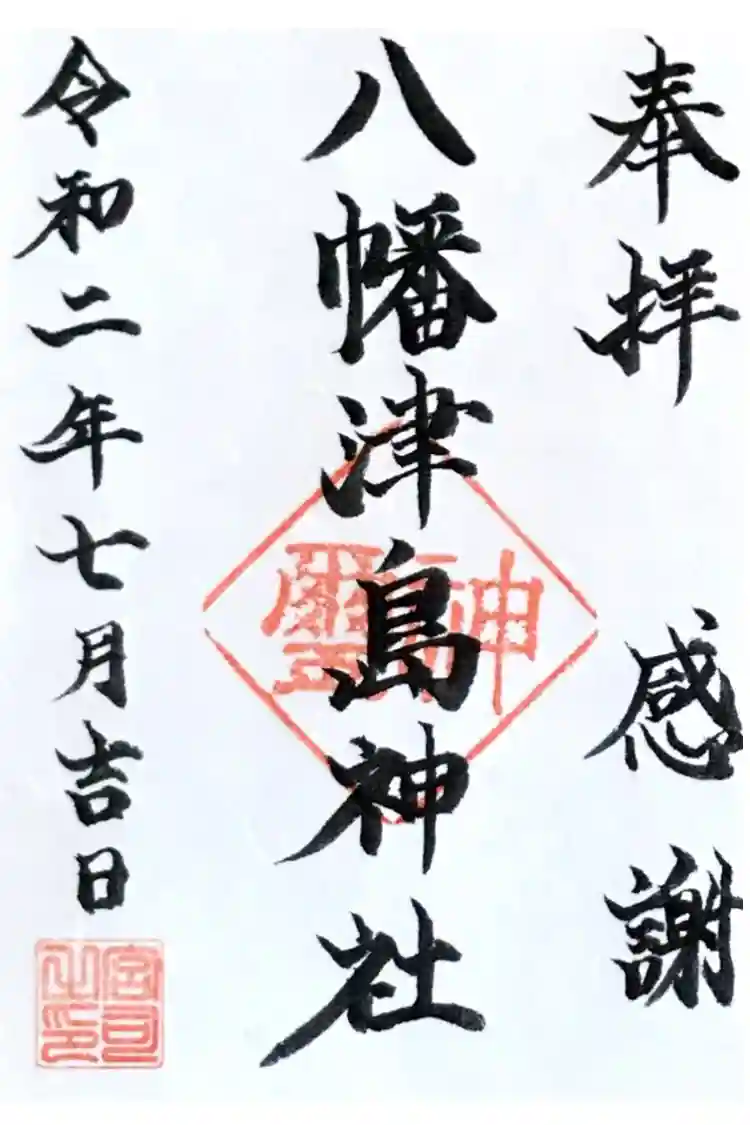 奉拝 感謝
八幡津島神社
神璽
令和二年七月吉日
宮司之印